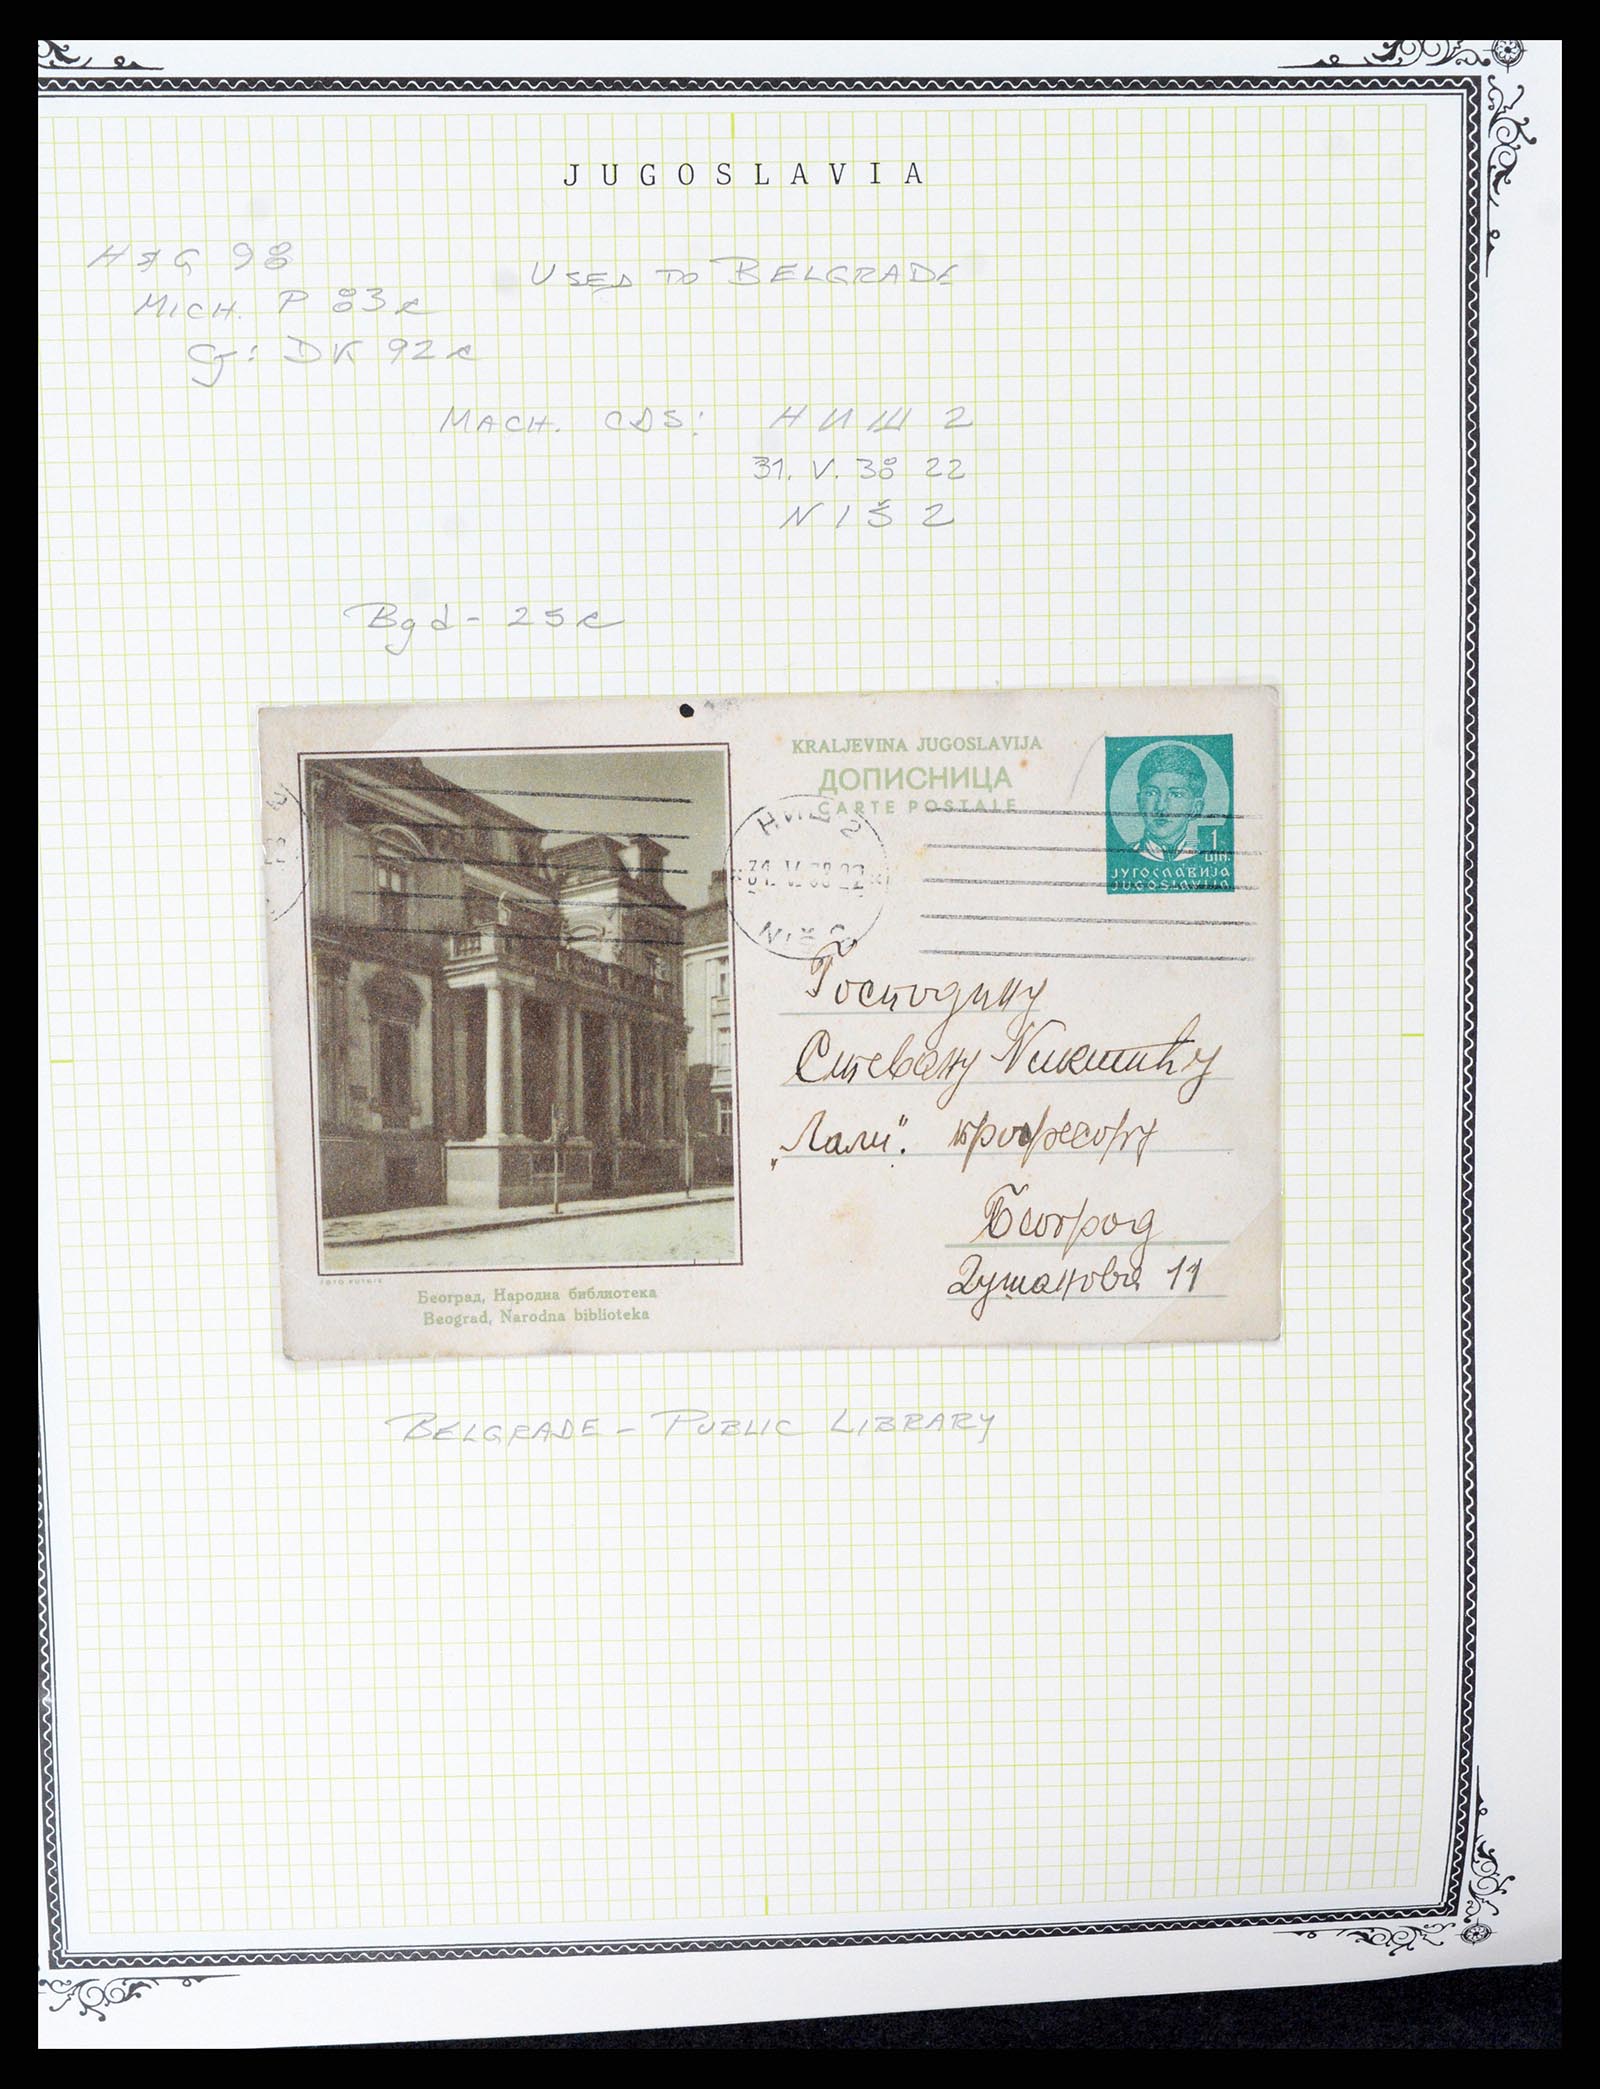 JUGOSLAVIA
H&G 98
USED TO BELGRADE
MICH. P 83c
Cf: DK 92c
MACH. CDS: НИШ 2
31. V. 38 22
NIŠ 2
Bgd - 25c
KRALJEVINA JUGOSLAVIJA
ДОПИСНИЦА
CARTE POSTALE
1
ДИН.
ЈУГОСЛАВИЈА
JUGOSLAVIJA
НИШ 2
31. V. 38 22
NIŠ 2
Господину
Стевану Никшићу
„Лали". професору
Београд
Душанова 11
FOTO PUTNIK
Београд, Народна библиотека
Beograd, Narodna biblioteka
BELGRADE - PUBLIC LIBRARY